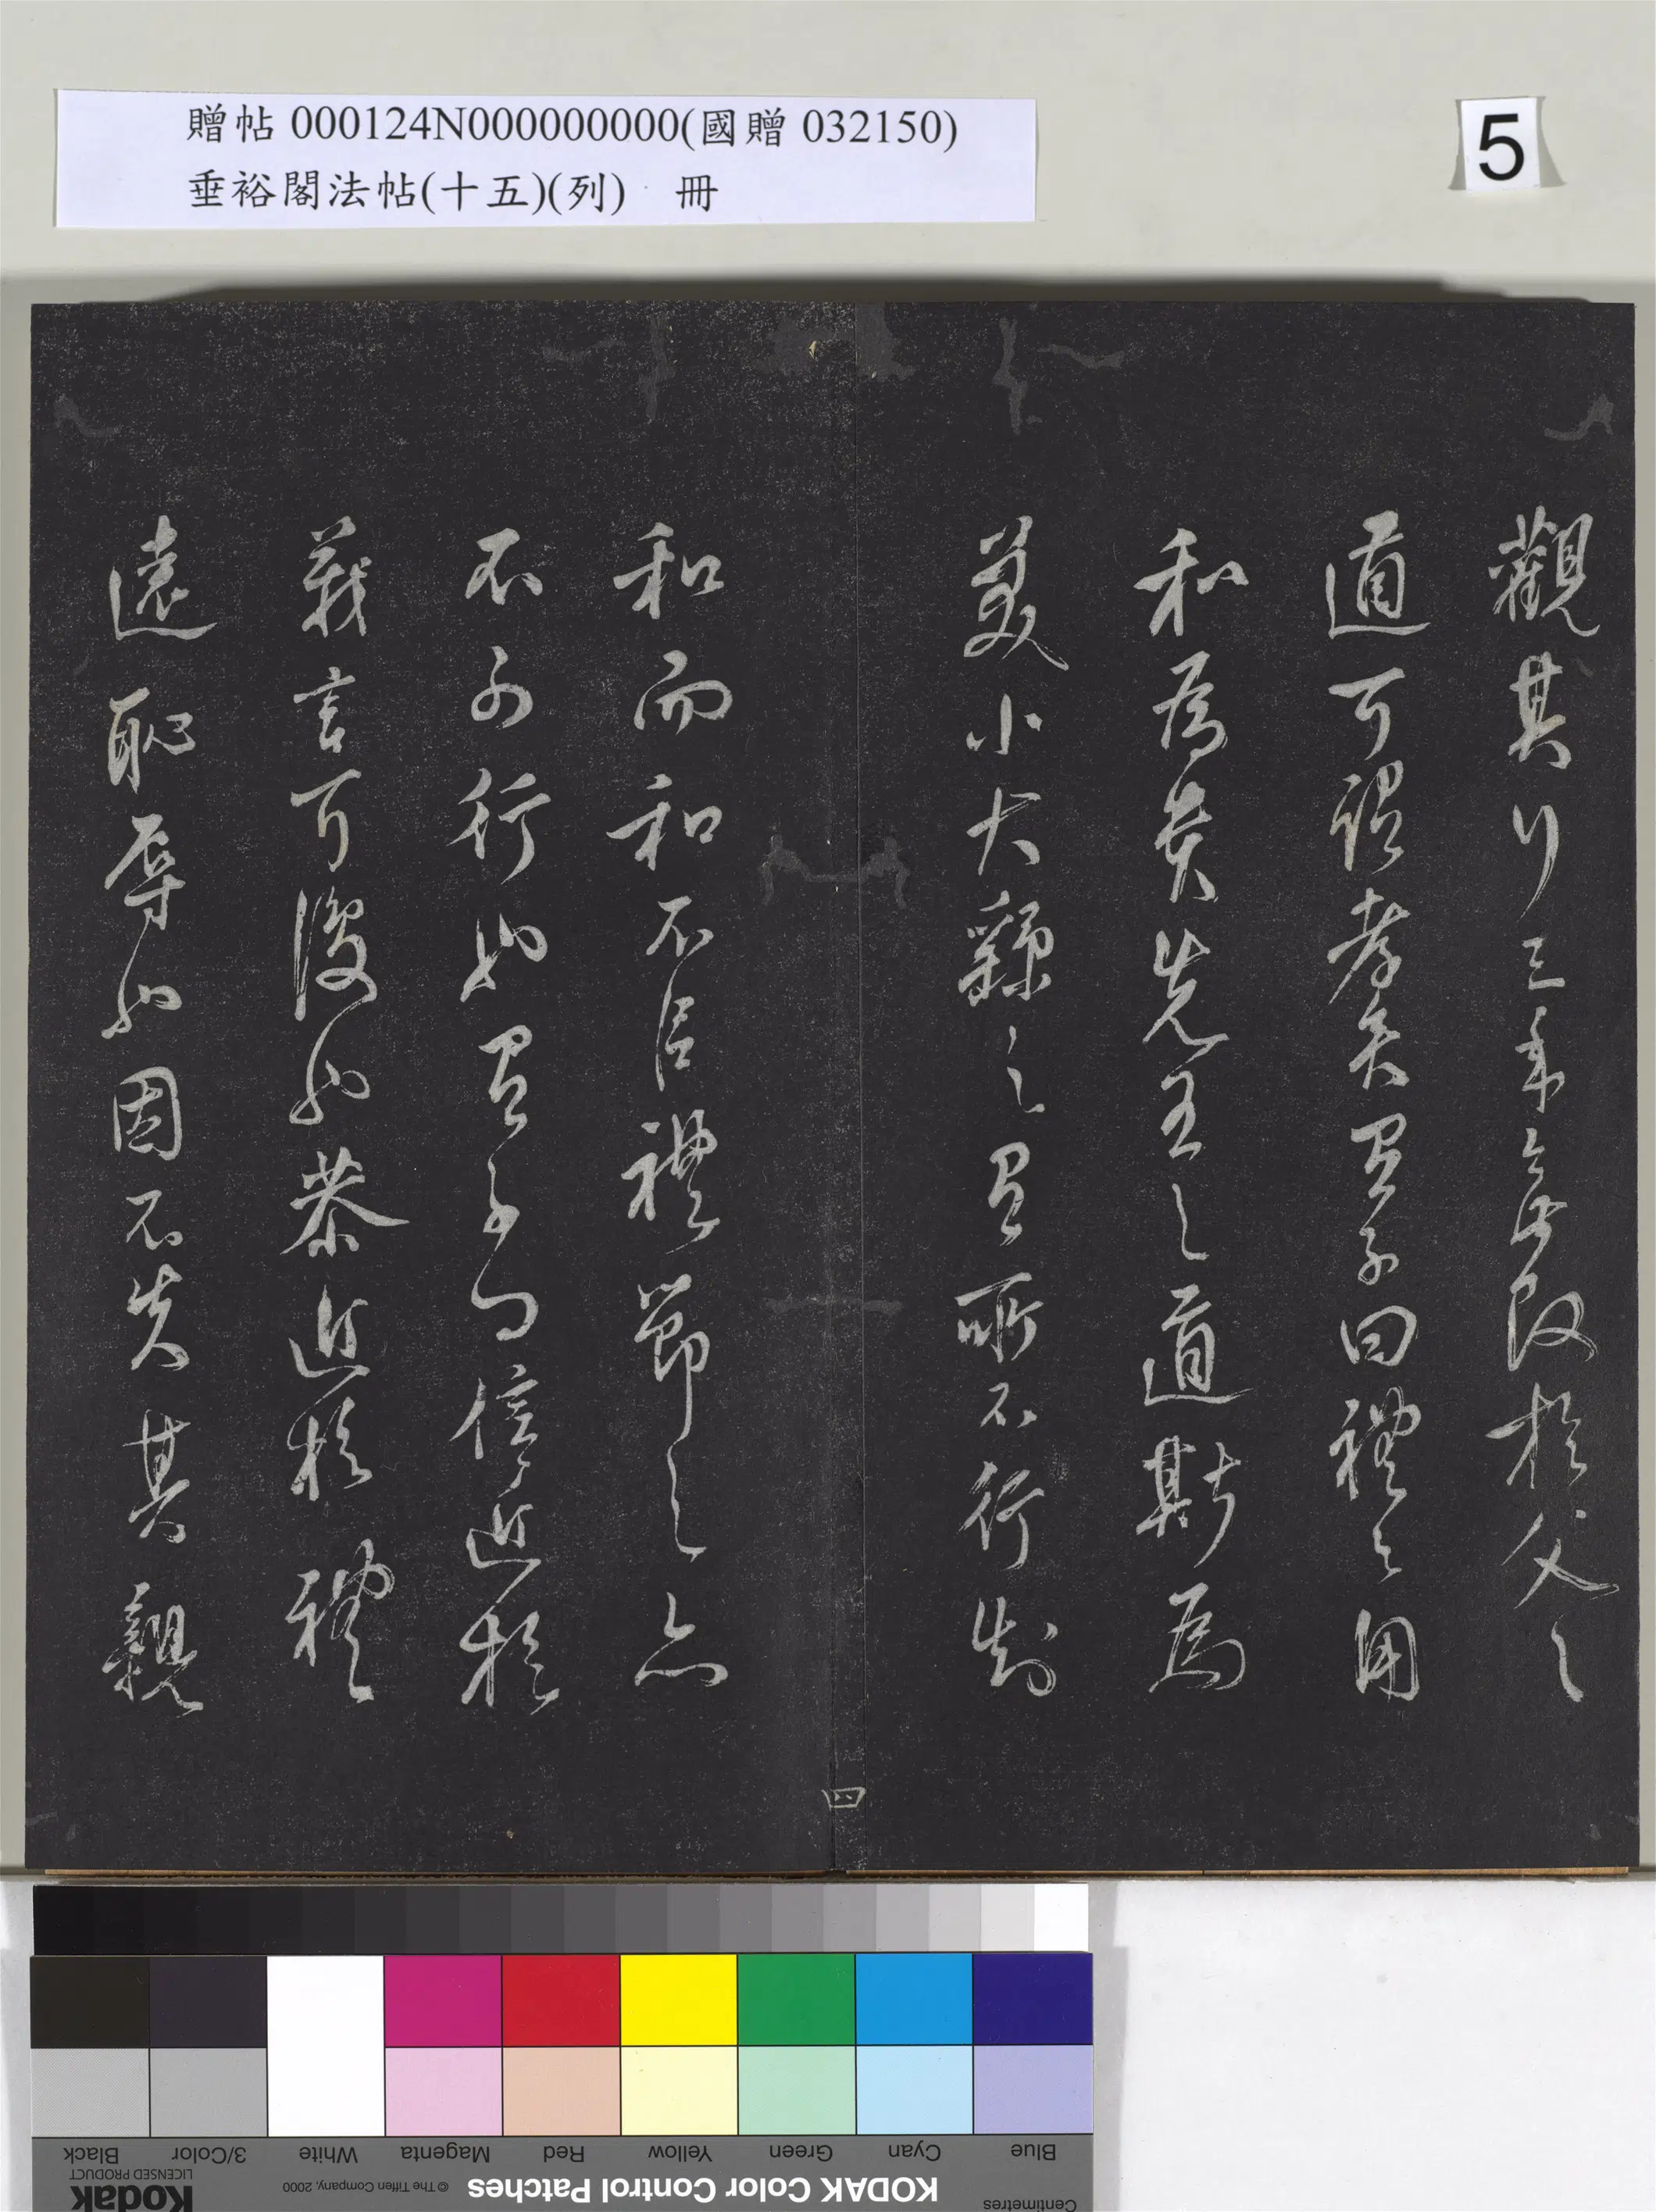 贈帖 000124N000000000(國贈 032150)
垂裕閣法帖(十五)(列) 冊
5
觀其行三年無改於父之
道可謂孝矣有子曰禮之用
和為貴先王之道斯為
美小大繇之有所不行知
和而和不以禮節之亦
不可行也有子曰信近於
義言可復也恭近於禮
遠恥辱也因不失其親
四
Blue Cyan Green Yellow Red Magenta White 3/Color Black
Centimetres
KODAK Color Control Patches
© The Tiffen Company, 2000
LICENSED PRODUCT
Kodak